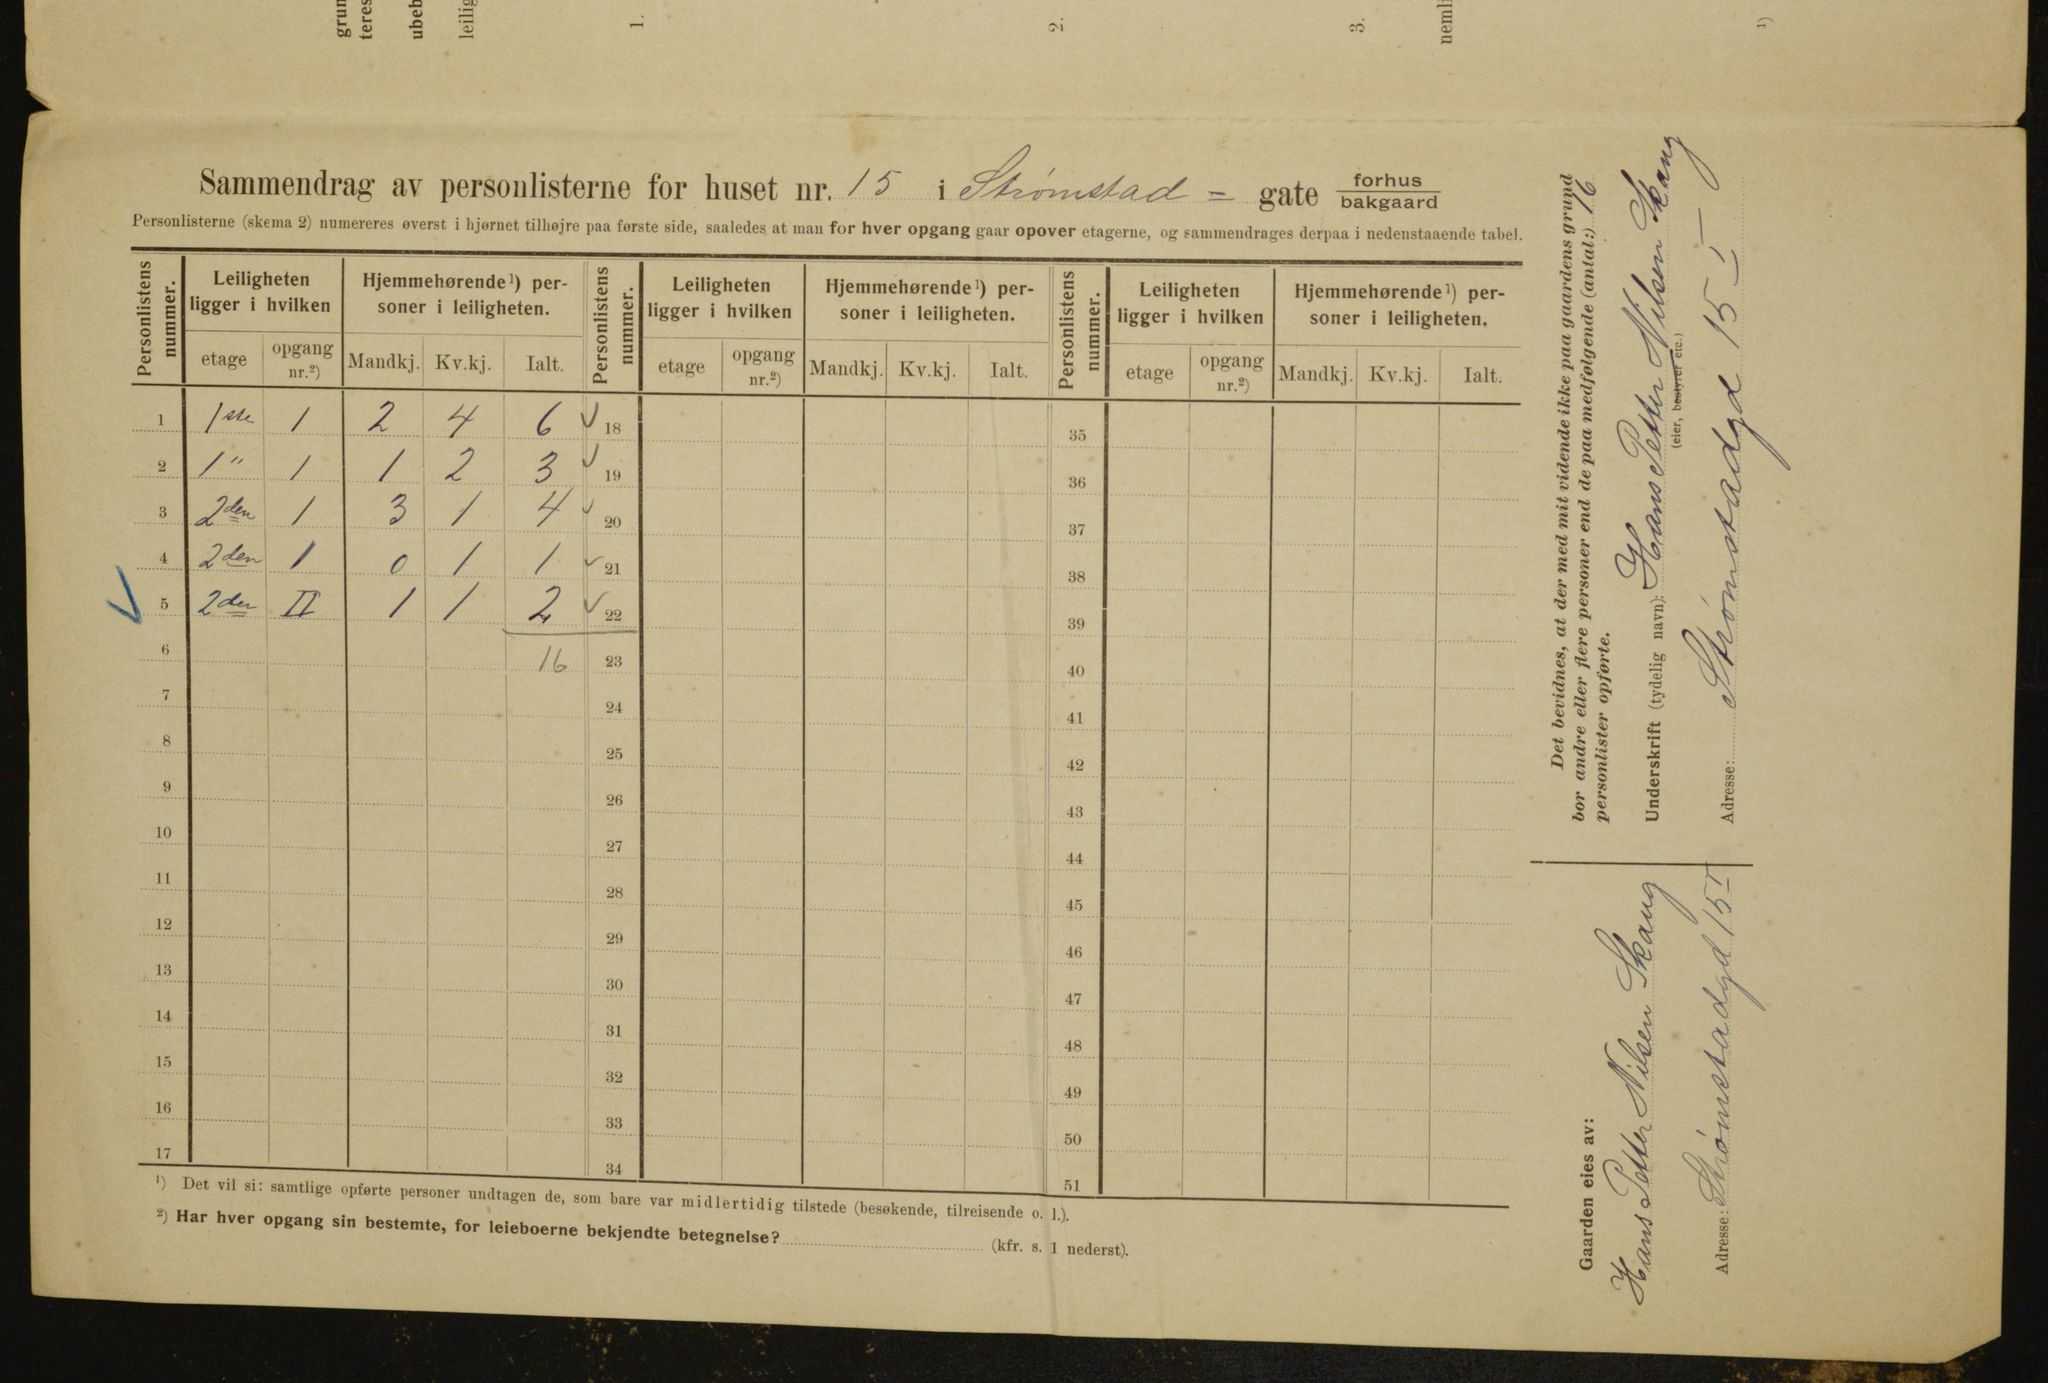 grun
teres
ubeb
leilig
1.
2.
3.
nemli
1)
Sammendrag av personlisterne for huset nr. 15 i Strømstad = gate forhus bakgaard
Personlisterne (skema 2) numereres øverst i hjørnet tilhøjre paa første side, saaledes at man for hver opgang gaar opover etagerne, og sammendrages derpaa i nedenstaaende tabel.
Personlistens nummer. Leiligheten ligger i hvilken Hjemmehørende¹) personer i leiligheten. Personlistens nummer. Leiligheten ligger i hvilken Hjemmehørende¹) personer i leiligheten. Personlistens nummer. Leiligheten ligger i hvilken Hjemmehørende¹) personer i leiligheten.
etage opgang nr.²) Mandkj. Kv.kj. Ialt. etage opgang nr.²) Mandkj. Kv.kj. Ialt. etage opgang nr.²) Mandkj. Kv.kj. Ialt.
1 1ste 1 2 4 6 ✓ 18 35
2 1" 1 1 2 3 ✓ 19 36
3 2den 1 3 1 4 ✓ 20 37
4 2den 1 0 1 1 ✓ 21 38
✓ 5 2den II 1 1 2 ✓ 22 39
6 16 23 40
7 24 41
8 25 42
9 26 43
10 27 44
11 28 45
12 29 46
13 30 47
14 31 48
15 32 49
16 33 50
17 34 51
¹) Det vil si: samtlige opførte personer undtagen de, som bare var midlertidig tilstede (besøkende, tilreisende o. l.).
²) Har hver opgang sin bestemte, for leieboerne bekjendte betegnelse? (kfr. s. 1 nederst).
Det bevidnes, at der med mit vidende ikke paa gaardens grund
bor andre eller flere personer end de paa medfølgende (antal:) 16
personlister opførte.
Underskrift (tydelig navn): Hans Petter Nilsen Skaug
(eier, bestyrer etc.)
Adresse: Strømstadgd 15 I
Gaarden eies av:
Hans Petter Nilsen Skaug
Adresse: Strømstadgd 15 I